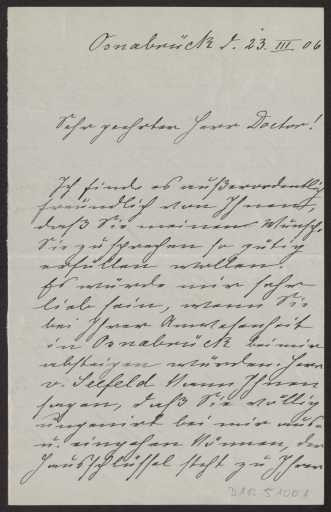 Osnabrück d. 23. III 06
Sehr geehrter Herr Doctor!
Ich finde es außerordentlich
freundlich von Ihnen,
daß Sie meinen Wunsch,
Sie zu sprechen so gütig
erfüllen wollen.
Es würde mir sehr
lieb sein, wenn Sie
bei Ihrer Anwesenheit
in Osnabrück bei mir
absteigen würden. Herr
v. Seefeld kann Ihnen
sagen, daß Sie völlig
ungenirt bei mir aus
u. eingehen können, der
Hausschlüssel steht zu Ihrer